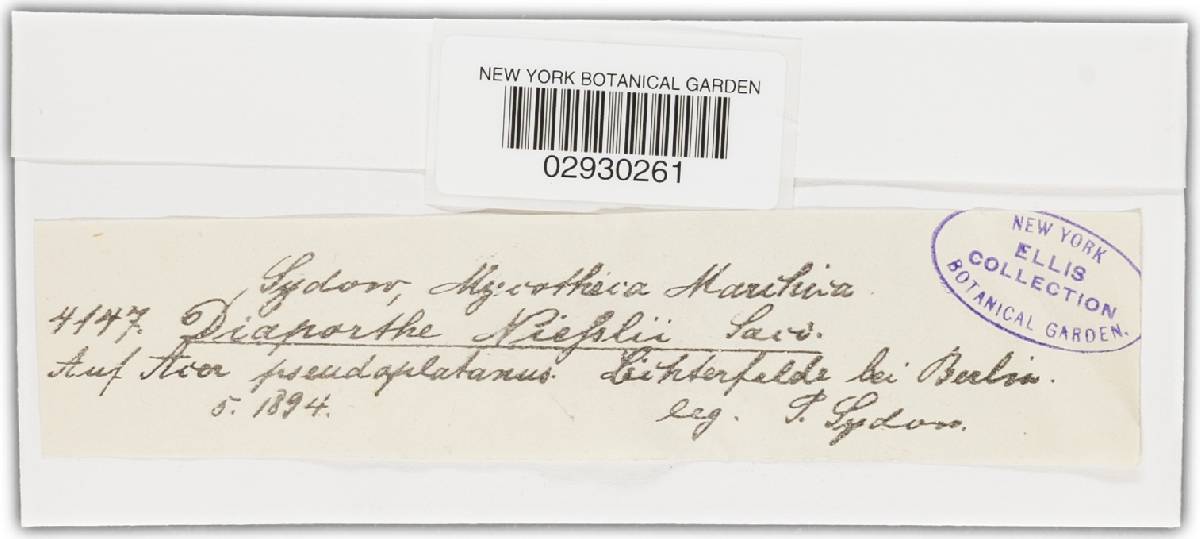 NEW YORK BOTANICAL GARDEN
02930261
NEW YORK
ELLIS
COLLECTION
BOTANICAL GARDEN.
Sydow, Mycotheca Marchica.
4147. Diaporthe Nießlii Sacc.
Auf Acer pseudoplatanus. Lichterfelde bei Berlin.
5. 1894. leg. P. Sydow.